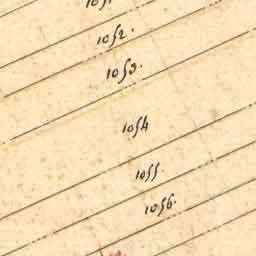 1051.
1052.
1053.
1054
1055
1056.